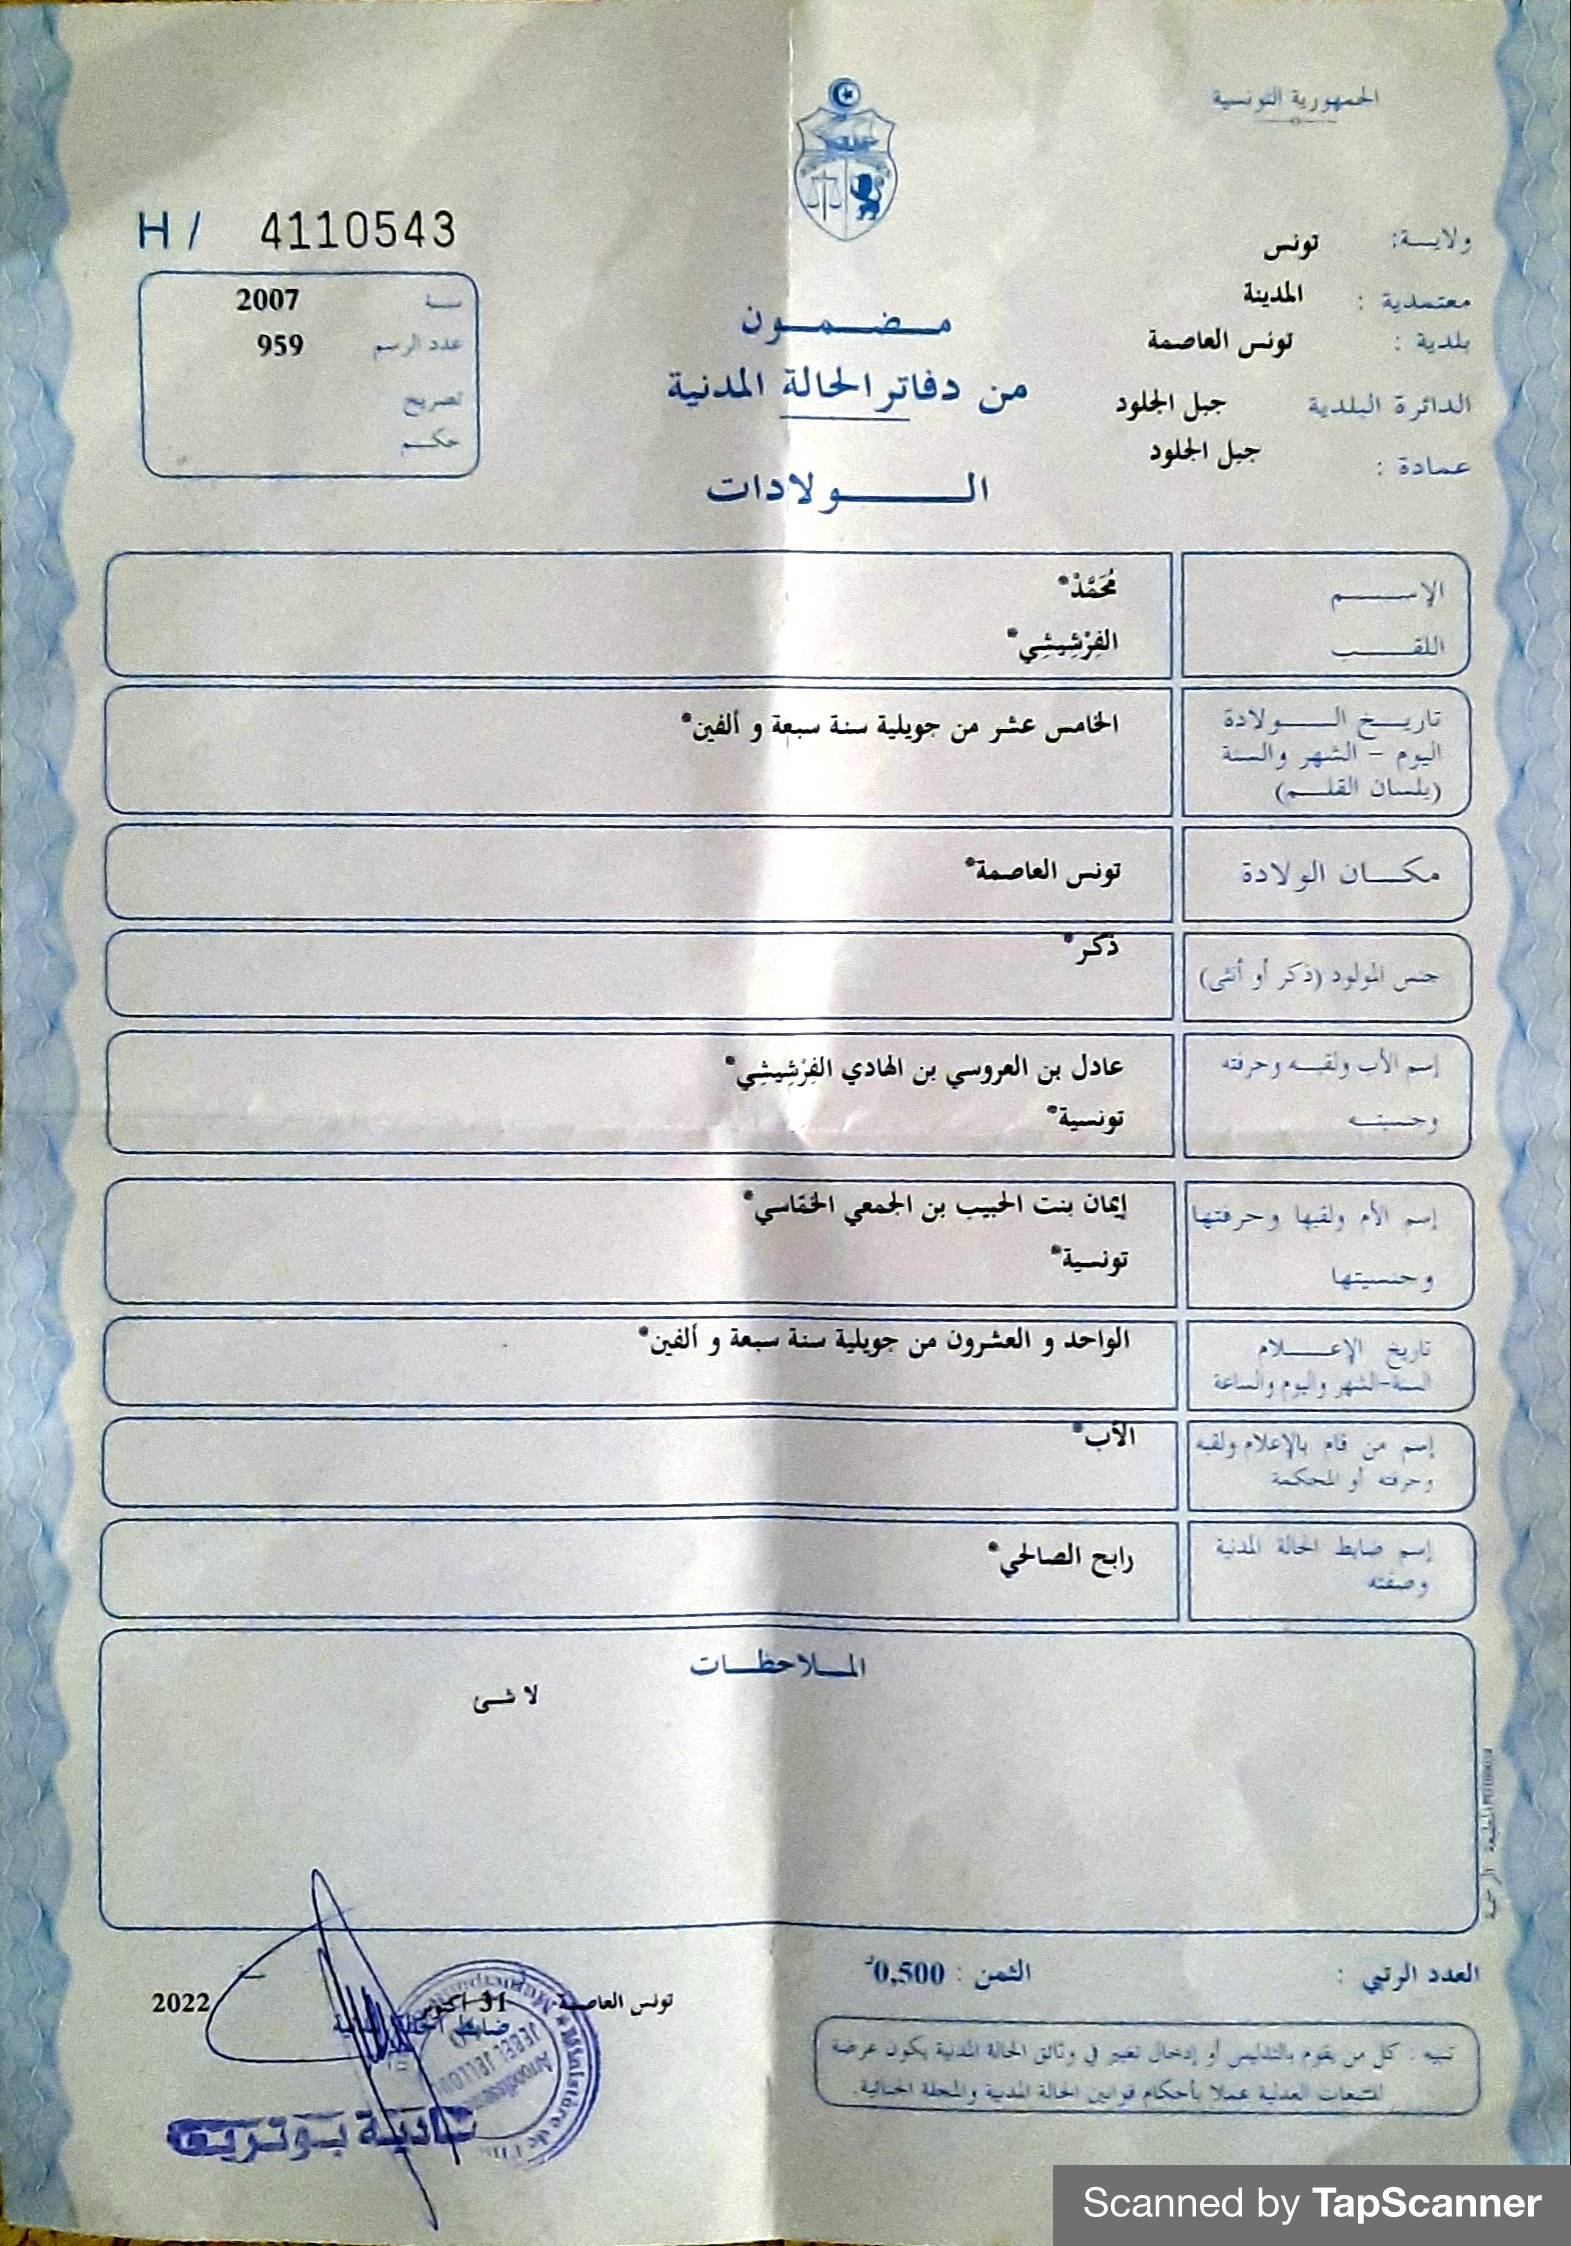 الجمهورية التونسية
ولايـة: تونس
معتمدية : المدينة
بلدية : تونس العاصمة
الدائرة البلدية جبل الجلود
عمادة : جبل الجلود
H / 4110543
سنة 2007
عدد الرسم 959
تصريح
حكم
مضمون
من دفاتر الحالة المدنية
الولادات
الإسم مُحَمَّدْ*
اللقب الفِرْشِيشِي*
تاريخ الولادة الخامس عشر من جويلية سنة سبعة و ألفين*
اليوم - الشهر والسنة
(بلسان القلم)
مكان الولادة تونس العاصمة*
جنس المولود (ذكر أو أنثى) ذكر*
إسم الأب ولقبه وحرفته عادل بن العروسي بن الهادي الفِرْشِيشِي*
وجنسيته تونسية*
إسم الأم ولقبها وحرفتها إيمان بنت الحبيب بن الجمعي الخقاسي*
وجنسيتها تونسية*
تاريخ الإعلام الواحد و العشرون من جويلية سنة سبعة و ألفين*
السنة-الشهر واليوم والساعة
إسم من قام بالإعلام ولقبه الأب*
وحرفته أو المحكمة
إسم ضابط الحالة المدنية رابح الصالحي*
وصفته
الملاحظات
لا شئ
المطبعة الرسمية
العدد الرتبي : الثمن : 0,500د
تنبيه : كل من يقوم بالتدليس أو إدخال تغيير في وثائق الحالة المدنية يكون عرضة
للتتبعات العدلية عملا بأحكام قوانين الحالة المدنية والمجلة الجنائية.
تونس العاصمة 31 أكتوبر 2022
ضابط الحالة المدنية
Ministère de l'In
JEBEL JELLOU
Arrondissement
نادية بوتريف
Scanned by TapScanner